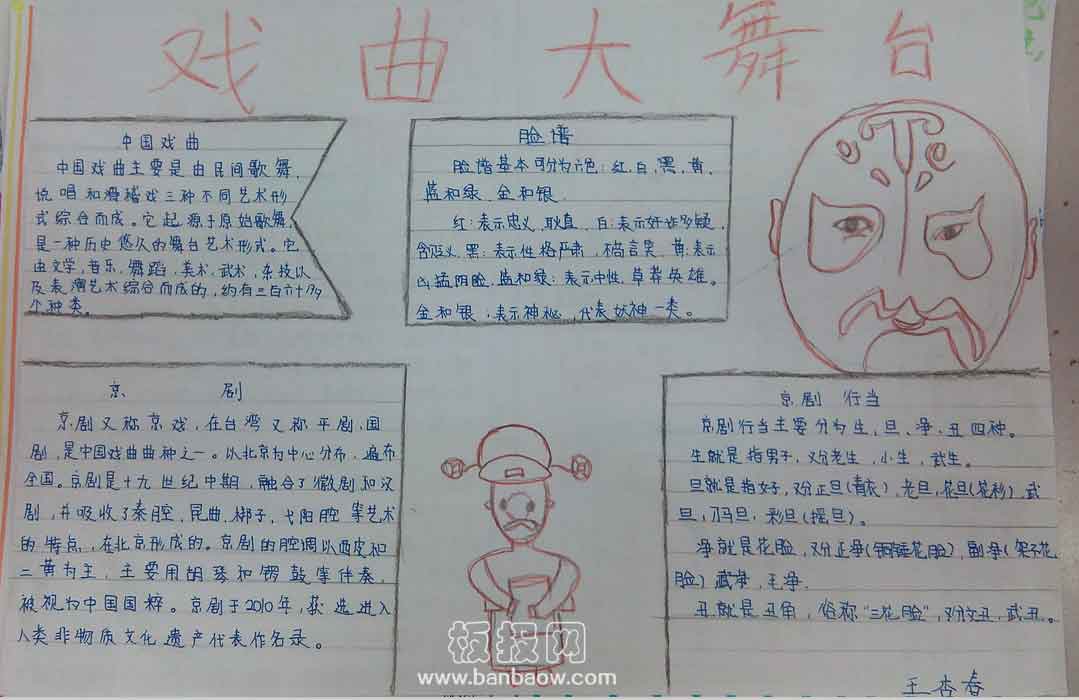 戏曲大舞台
中国戏曲
中国戏曲主要是由民间歌舞、
说唱和滑稽戏三种不同艺术形
式综合而成。它起源于原始歌舞,
是一种历史悠久的舞台艺术形式。它
由文学,音乐,舞蹈,美术,武术,杂技以
及表演艺术综合而成的,约有三百六十多
个种类。
脸谱
脸谱基本可分为六色:红,白,黑,黄,
蓝和绿,金和银
红:表示忠义,耿直,白:表示奸诈多疑,
含贬义,黑:表示性格严肃,不苟言笑,黄:表示
凶猛阴险,蓝和绿:表示中性,草莽英雄。
金和银:表示神秘,代表妖神一类。
京剧
京剧又称京戏,在台湾又称平剧、国
剧,是中国戏曲曲种之一。以北京为中心分布,遍布
全国。京剧是十九世纪中期,融合了徽剧和汉
剧,并吸收了秦腔,昆曲,梆子,弋阳腔等艺术
的特点,在北京形成的。京剧的腔调以西皮和
二黄为主,主要用胡琴和锣鼓等伴奏,
被视为中国国粹。京剧于2010年,获选进入
人类非物质文化遗产代表作名录。
京剧 行当
京剧行当主要分为生,旦、净、丑四种。
生就是指男子,又分老生,小生,武生。
旦就是指女子,又分正旦(青衣),老旦,花旦(花衫),武
旦,刀马旦,彩旦(摇旦)。
净就是花脸,又分正净(铜锤花脸),副净(架子花
脸)武净,毛净.
丑就是丑角,俗称"三花脸",又分文丑,武丑。
王杏春
板报网
www.banbaow.com